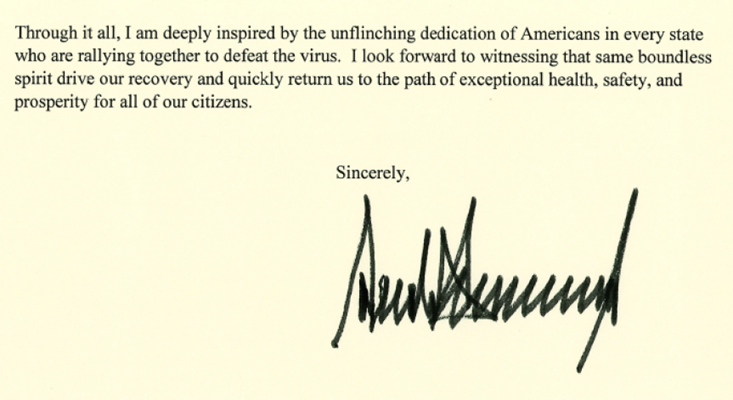 Through it all, I am deeply inspired by the unflinching dedication of Americans in every state
who are rallying together to defeat the virus.  I look forward to witnessing that same boundless
spirit drive our recovery and quickly return us to the path of exceptional health, safety, and
prosperity for all of our citizens.
Sincerely,